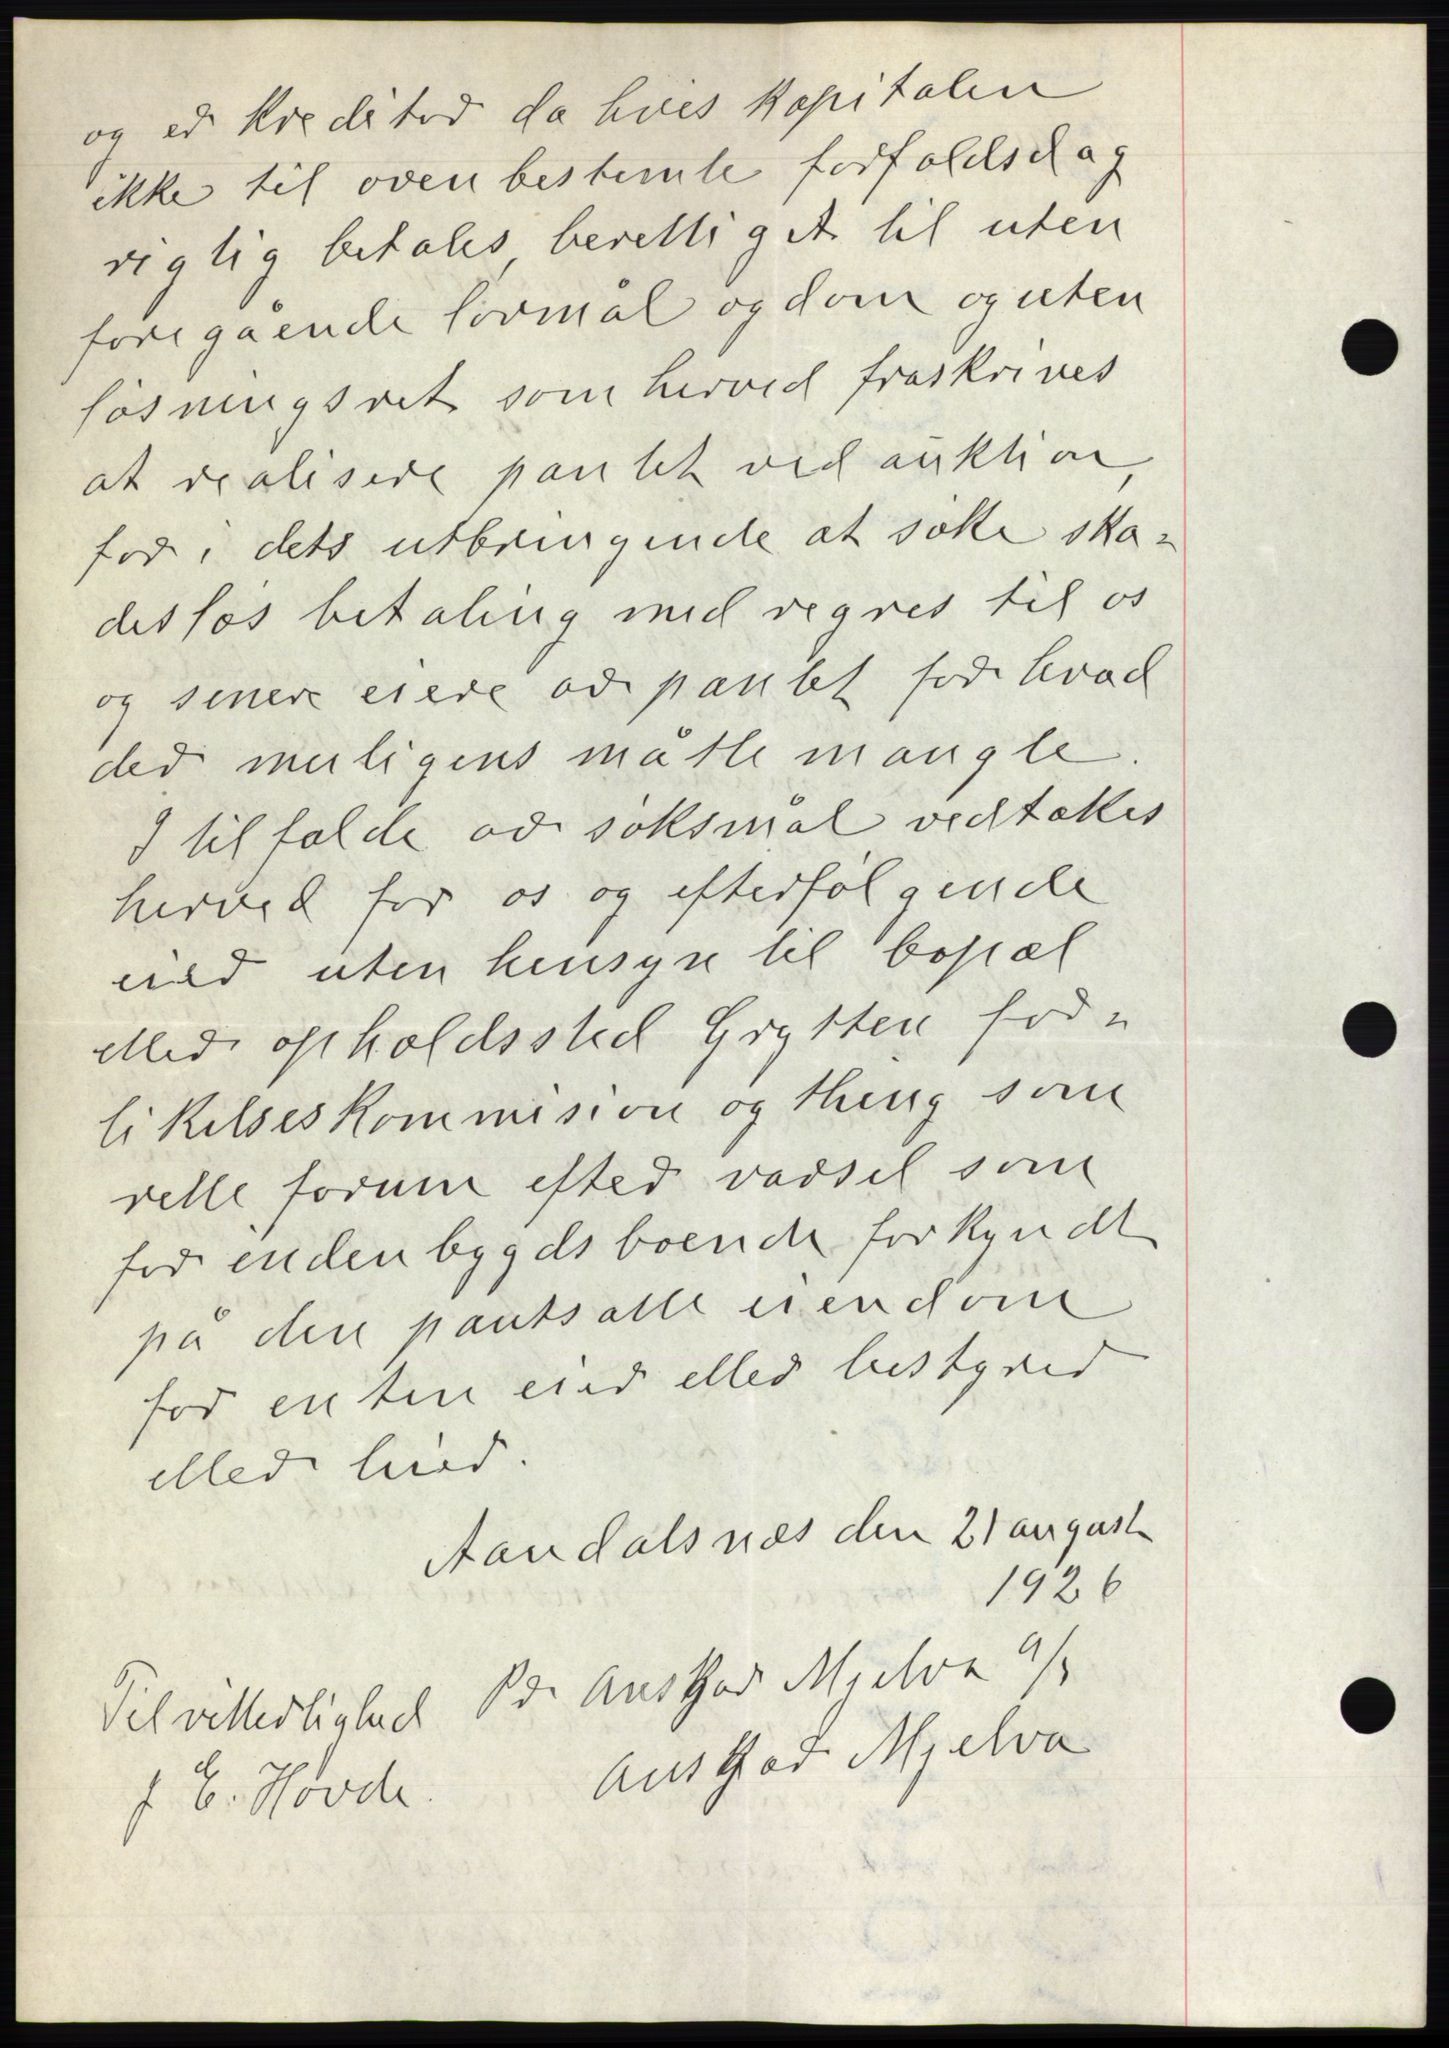 og er kreditor da hvis kapitalen
ikke til ovenbestemte forfaldsdag
rigtig betales, berettiget til uten
foregående lovmål og dom og uten
løsningsret som herved fraskrives
at realisere pantet ved auktion,
for i dets utbringende at søke ska=
desløs betaling med regres til os
og senere eiere av pantet for hvad
der muligens måtte mangle.
I tilfælde av søksmål vedtakes
herved for os og efterfølgende
eier uten hensyn til bopæl
eller opholdssted Grytten for=
likelseskommision og thing som
rette forum efter varsel som
for indenbygdsboende forkyndt
på den pantsatte eiendom
for enten eier eller bestyrer
eller leier.
Aandalsnæs den 21 august
1926
Til vitterlighed Pr. Anskjar Mjelva a/s
J E. Hovde. Anskjar Mjelva